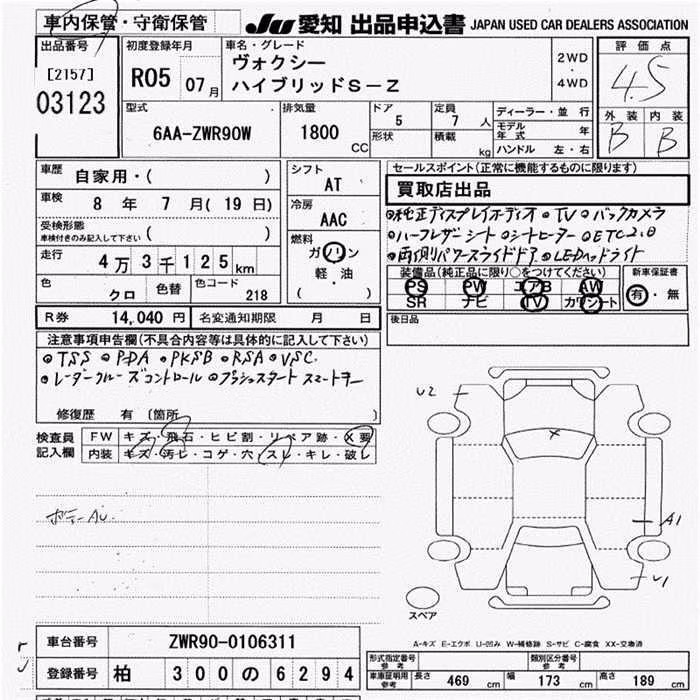 車内保管・守衛保管
JU 愛知 出品申込書 JAPAN USED CAR DEALERS ASSOCIATION
出品番号
[2157]
03123
初度登録年月
R05 07月
車名・グレード
ヴォクシー
ハイブリッドS－Z
2WD
・
4WD
評価点
4.5
外装 内装
B B
型式
6AA-ZWR90W
排気量
1800 CC
ドア 5
形状
定員 7 人
積載 kg
ディーラー・並行
モデル年式 年
ハンドル 左・右
車歴 自家用・( )
車検 8年 7月(19日)
受検形態
車検付きのみ記入して下さい ( )
走行 4万3千125km
色 クロ
色替
色コード 218
シフト
AT
冷房
AAC
燃料
ガソリン
軽・油
( )
セールスポイント(正常に機能するものに限ります)
買取店出品
●純正ディスプレイオーディオ ●TV ●バックカメラ
●ハーフレザーシート ●シートヒーター ●ETC2.0
●両側パワースライドドア ●LEDヘッドライト
装備品(純正品に限り○をつけてください)
PS PW エアB AW
SR ナビ TV カワシート
新車保証書
有・無
後日品
R券 14,040円 名変通知期限 月 日
注意事項申告欄(不具合内容等は具体的に記入して下さい)
●TSS ●PDA ●PKSB ●RSA ●VSC
●レーダークルーズコントロール ●プッシュスタート スマートキー
修復歴 有 〔箇所 〕
検査員記入欄
FW キズ・飛石・ヒビ割・リペア跡・X要
内装 キズ・汚レ・コゲ・穴・スレ・キレ・破レ
ボデーAu.
U2
X
A1
U1
スペア
A-キズ E-エクボ U-凹み W-補修跡 S-サビ C-腐食 XX-交換済
車台番号 ZWR90-0106311
登録番号 柏 300の6294
形式指定番号 参考
類別区分番号 参考
車庫証明用 参考 長さ 469 cm 幅 173 cm 高さ 189 cm